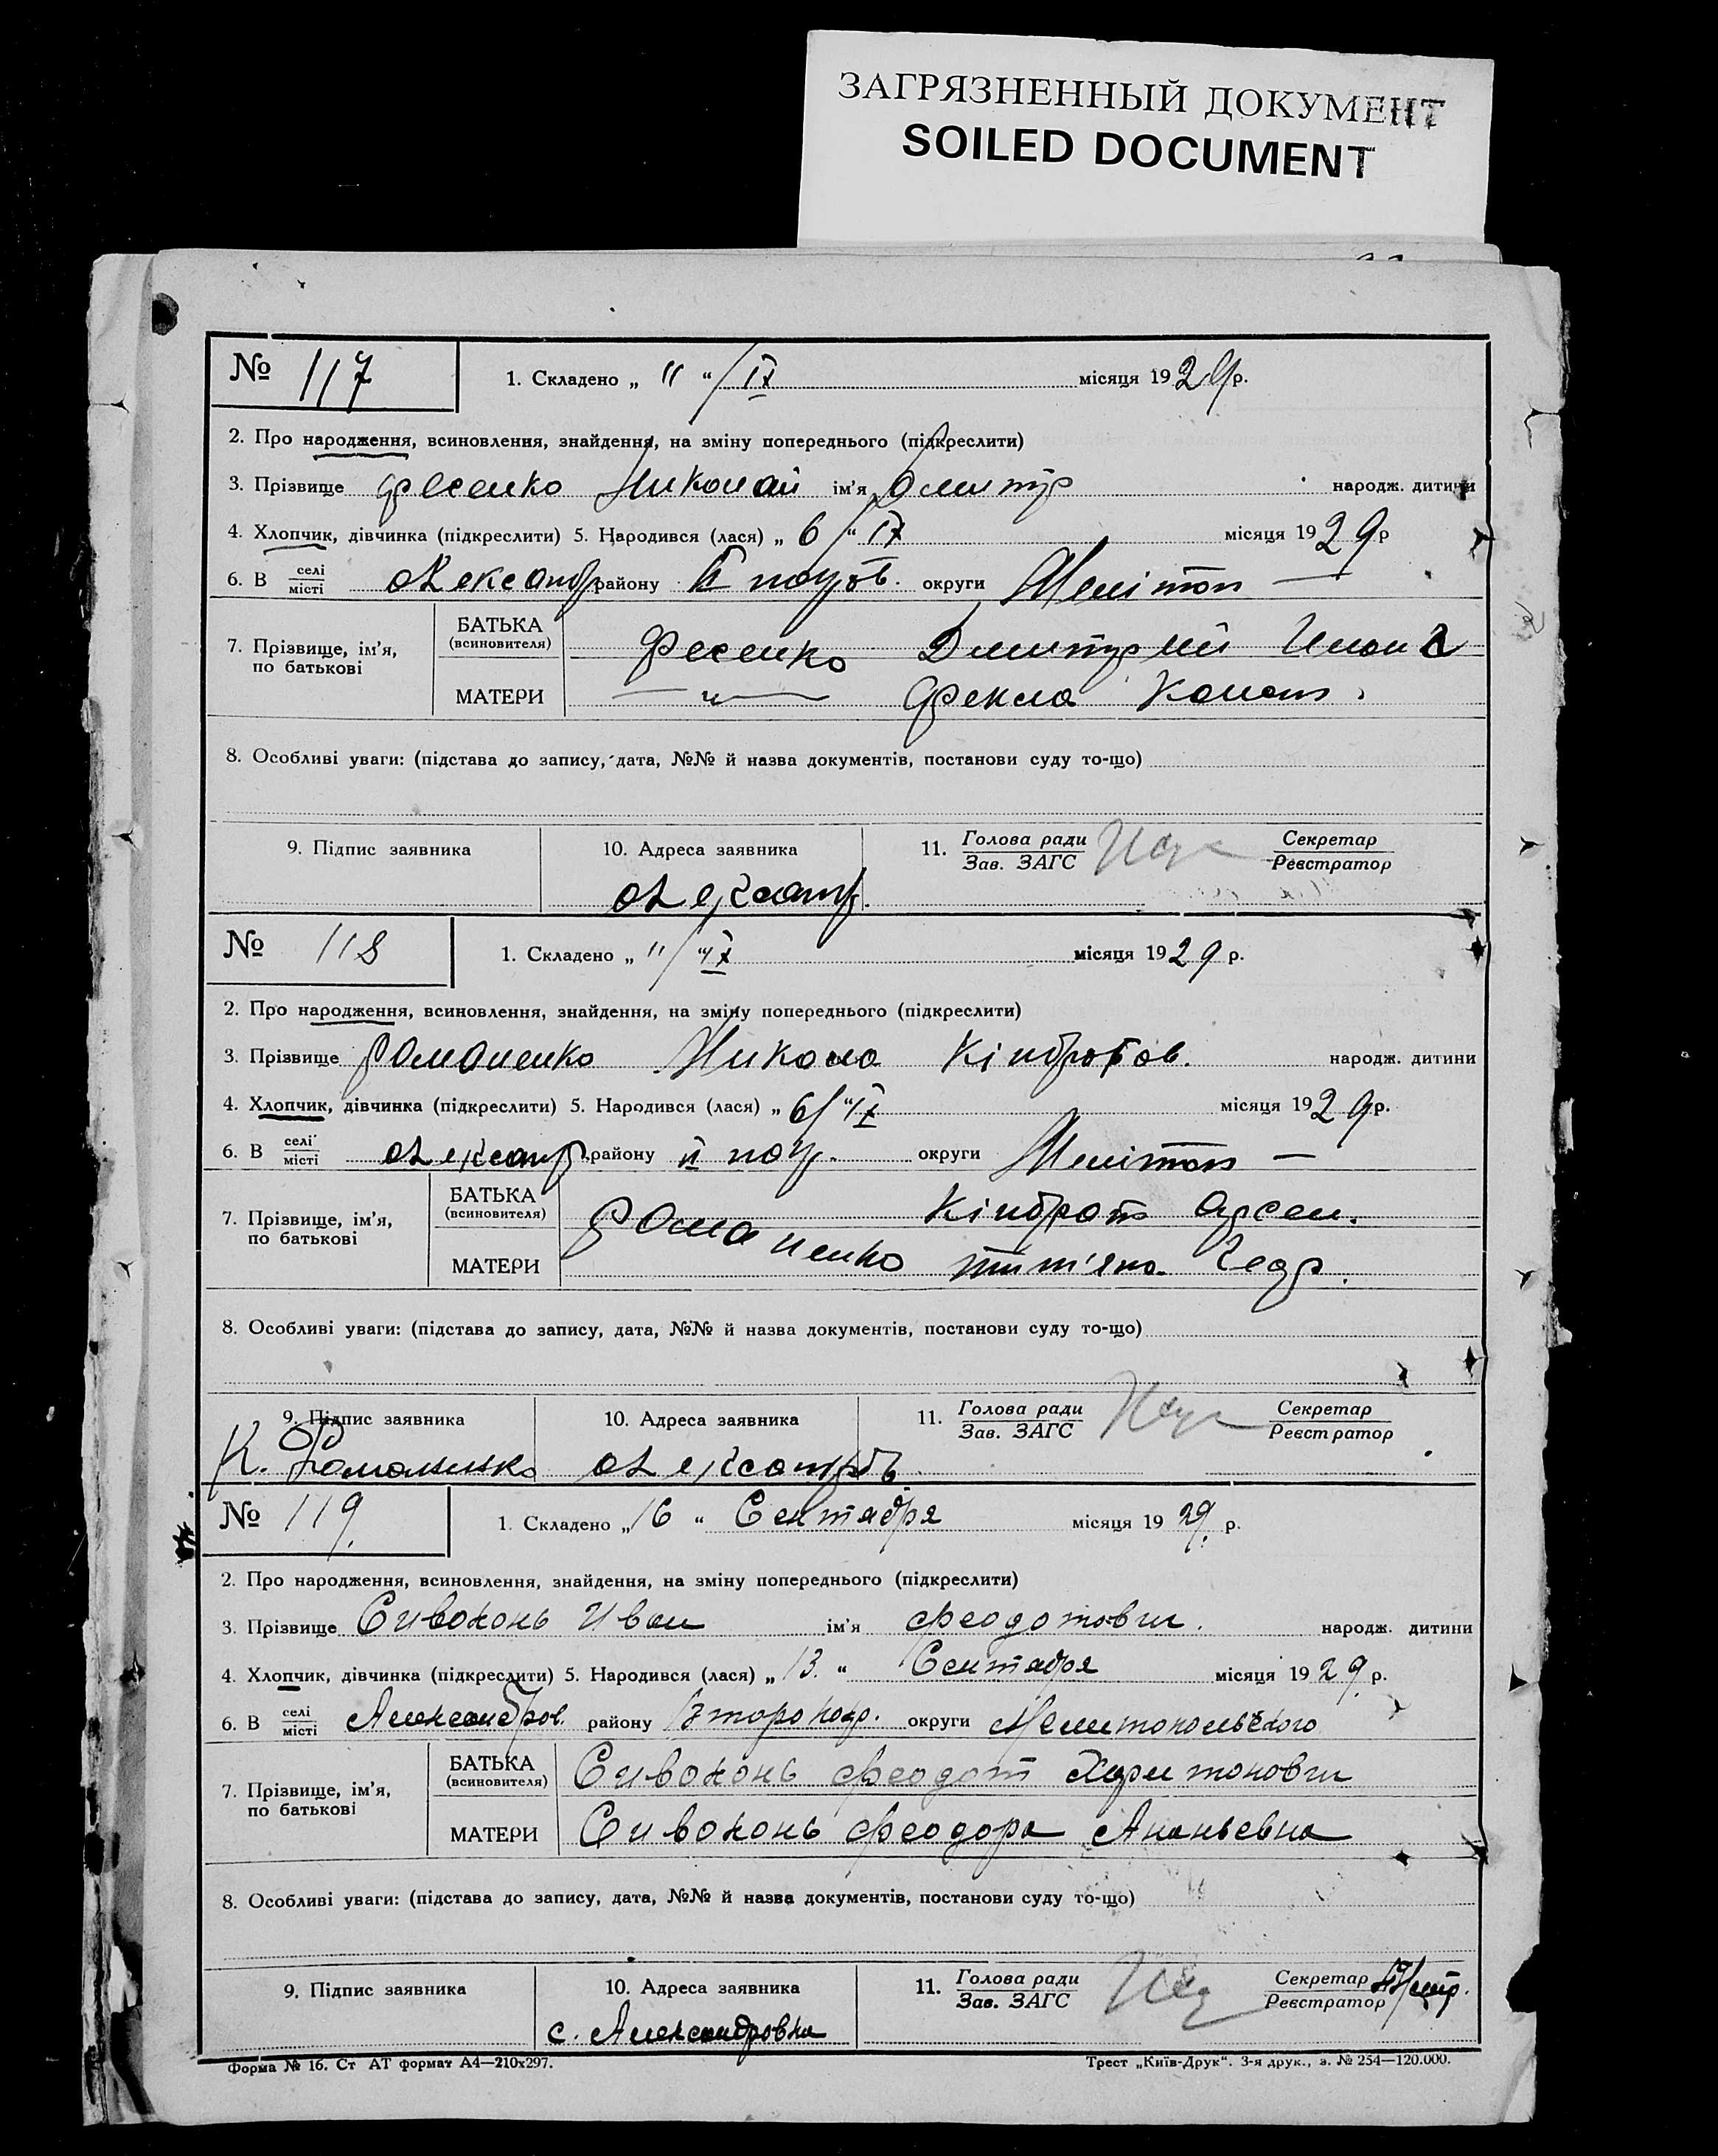 ЗАГРЯЗНЕННЫЙ ДОКУМЕНТ
SOILED DOCUMENT
№ 117 1. Складено „ 11 “ / IX місяця 1929 р.
2. Про народження, всиновлення, знайдення, на зміну попереднього (підкреслити)
3. Прізвище Фесенко Николай ім'я Дмитр народж. дитини
4. Хлопчик, дівчинка (підкреслити) 5. Народився (лася) „ 6 / “ IX місяця 1929 р
6. В селі/місті Александр району II покров. округи Мелітоп —
7. Прізвище, ім'я, по батькові
БАТЬКА (всиновителя) Фесенко Дмитрий
МАТЕРИ — „ — Фекла
8. Особливі уваги: (підстава до запису, дата, №№ й назва документів, постанови суду то-що)
9. Підпис заявника 10. Адреса заявника 11. Голова ради/Зав. ЗАГС Секретар/Реєстратор
Александр.
№ 118 1. Складено „ 11 / “ IX місяця 1929 р.
2. Про народження, всиновлення, знайдення, на зміну попереднього (підкреслити)
3. Прізвище Романенко Никола Кіндратов. народж. дитини
4. Хлопчик, дівчинка (підкреслити) 5. Народився (лася) „ 6 / “ IX місяця 1929 р.
6. В селі/місті Александр. району II покр. округи Мелітоп —
7. Прізвище, ім'я, по батькові
БАТЬКА (всиновителя) Романенко Кіндрат Арсен.
МАТЕРИ Тит'яна Федр.
8. Особливі уваги: (підстава до запису, дата, №№ й назва документів, постанови суду то-що)
9. Підпис заявника 10. Адреса заявника 11. Голова ради/Зав. ЗАГС Секретар/Реєстратор
К. Романенко Александрів
№ 119. 1. Складено „ 16 “ Сентября місяця 1929. р.
2. Про народження, всиновлення, знайдення, на зміну попереднього (підкреслити)
3. Прізвище Сивоконь Иван ім'я Феодотович. народж. дитини
4. Хлопчик, дівчинка (підкреслити) 5. Народився (лася) „ 13. “ Сентября місяця 1929. р.
6. В селі/місті Александров. району Второпокр. округи Мелитопольského
7. Прізвище, ім'я, по батькові
БАТЬКА (всиновителя) Сивоконь Феодот Харитонович
МАТЕРИ Сивоконь Феодора Ананьевна
8. Особливі уваги: (підстава до запису, дата, №№ й назва документів, постанови суду то-що)
9. Підпис заявника 10. Адреса заявника 11. Голова ради/Зав. ЗАГС Секретар/Реєстратор
с. Александровка
Форма № 16. Ст АТ формат А4—210х297. Трест „Київ-Друк“. 3-я друк., з. № 254—120.000.